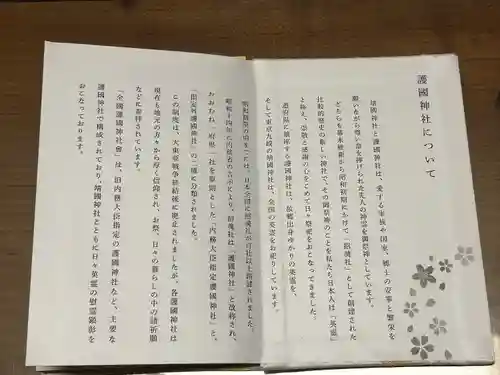 護國神社について
靖國神社と護國神社は、愛する家族や国家、郷土の安寧と繁栄を
願いながら尊い命を捧げられた先人の神霊を御祭神としています。
どちらも幕末維新から昭和初期にかけて「招魂社」として創建された
比較的歴史の新しい神社で、その御祭神のことを私たち日本人は「英霊」
と称え、崇敬と感謝の心をこめて日々祭祀をおこなってきました。
道府県に鎮座する護國神社は、故郷出身ゆかりの英霊を、
そして東京九段の靖國神社は、全国の英霊をお祀りしています。
明治御創の頃までには、日本全国に招魂社が百社以上創建されました。
昭和十四年に内務省の告示により、招魂社は「護國神社」と改称され、
おおむね一府県一社を原則とした「内務大臣指定護國神社」と、
「指定外護國神社」の二種に分類されました。
この制度は、大東亜戦争終結後に廃止されましたが、各護國神社は
現在も地元の方々から厚く信仰され、お祭、日々の暮らしの中の諸祈願
などに奉拝されています。
「全國護國神社會」は、旧内務大臣指定の護國神社など、主要な
護國神社で構成されており、靖國神社とともに日々英霊の慰霊顕彰を
おこなっております。